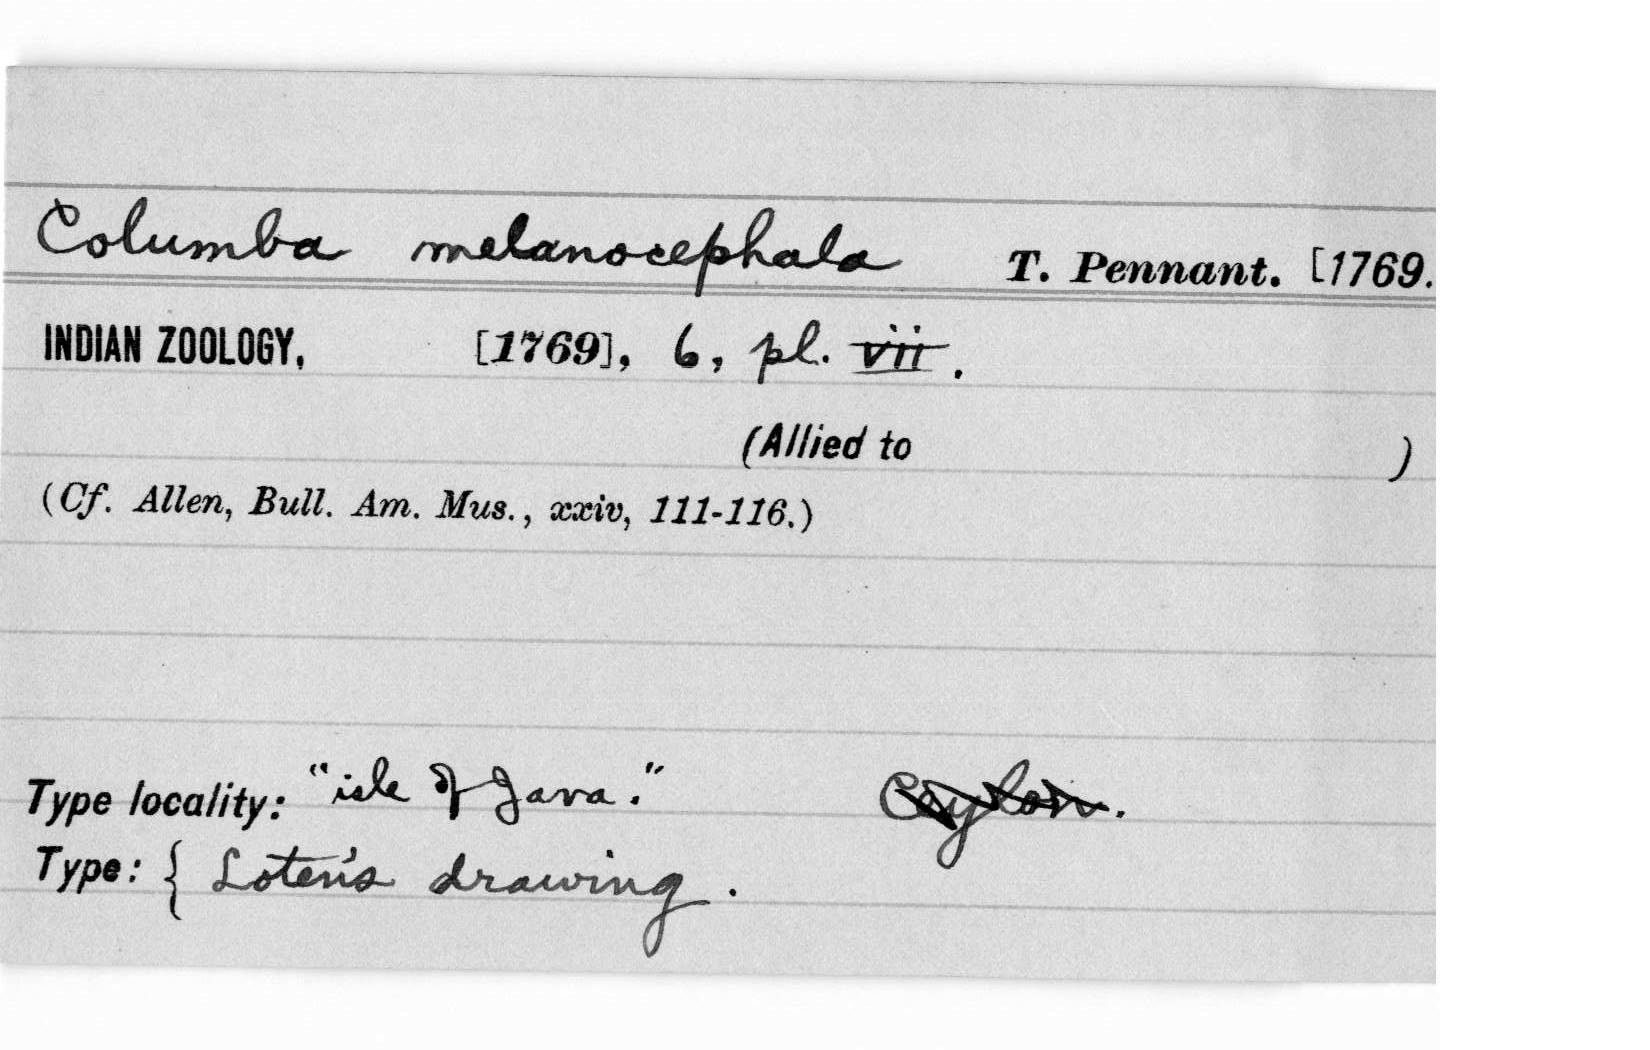 Columba melanocephala T. Pennant. [1769.
INDIAN ZOOLOGY, [1769], 6, pl. vii.
(Allied to )
(Cf. Allen, Bull. Am. Mus., xxiv, 111-116.)
Type locality: "isle of Java." Ceylon.
Type: { Loten's drawing.